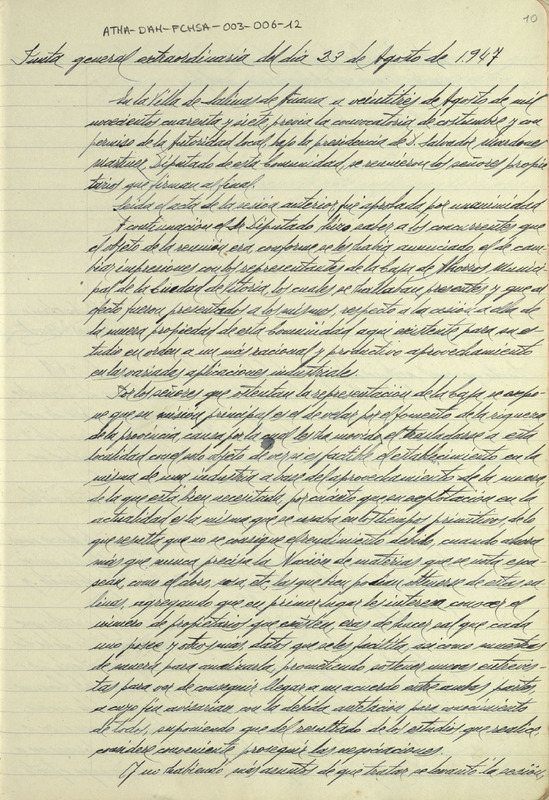 10
ATHA-DAH-FCHSA-003-006-12
Junta general extraordinaria del día 23 de Agosto de 1.947
En la Villa de Salinas de Añana a veintitres de Agosto de mil
novecientos cuarenta y siete, previa la convocatoria de costumbre y con
permiso de la Autoridad local, bajo la presidencia de D. Salvador Mardones
Martinez, Diputado de esta Comunidad, se reunieron los señores propie
tarios que firman al final.
Leida el acta de la sesión anterior, fué aprobada por unanimidad
A continuación el Sr Diputado hizo saber a los concurrentes que
el objeto de la reunión era, conforme se les habia anunciado, el de cam
biar impresiones con los representantes de la Caja de Ahorros Munici
pal de la Ciudad de Vitoria, los cuales se hallaban presentes y que al
efecto fueron presentados a los mismos, respecto a la cesión a ella de
la muera propiedad de esta Comunidad aqui existente para su es-
tudio en orden a un más racional y productivo aprovechamiento
en las variadas aplicaciones industriales.
Por los señores que ostentan la representación de la Caja se expo-
ne que su misión principal es el de velar por el fomento de la riqueza
de la provincia, causa por la cual les ha movido el trasladarse a esta
localidad con el solo objeto de ver si es factible el establecimiento en la
misma de una industria a base del aprovechamiento de la muera
de la que está bien necesitada, por cuanto que su explotación en la
actualidad es la misma que se usaba en los tiempos primitivos, de lo
que resulta que no se consigue el rendimiento debido, cuando ahora
más que nunca precisa la Nación de materias que se nota esca-
sean, como el cloro, sosa, etc, las que bien podian obtenerse de estas sa-
linas, agregando que en primer lugar les interesa conocer el
número de propietarios que existen, eras de hacer sal que cada
uno posee y otros más datos que se les facilita, asi como muestras
de muera para analizarla, prometiendo sostener nuevas entrevis-
tas para ver de conseguir llegar a un acuerdo entre ambas partes,
a cuyo fin avisarian con la debida antelación para conocimiento
de todos, suponiendo que del resultado de los estudios que realice,
considere conveniente proseguir las negociaciones.
Y no habiendo más asuntos de que tratar se levantó la sesión,